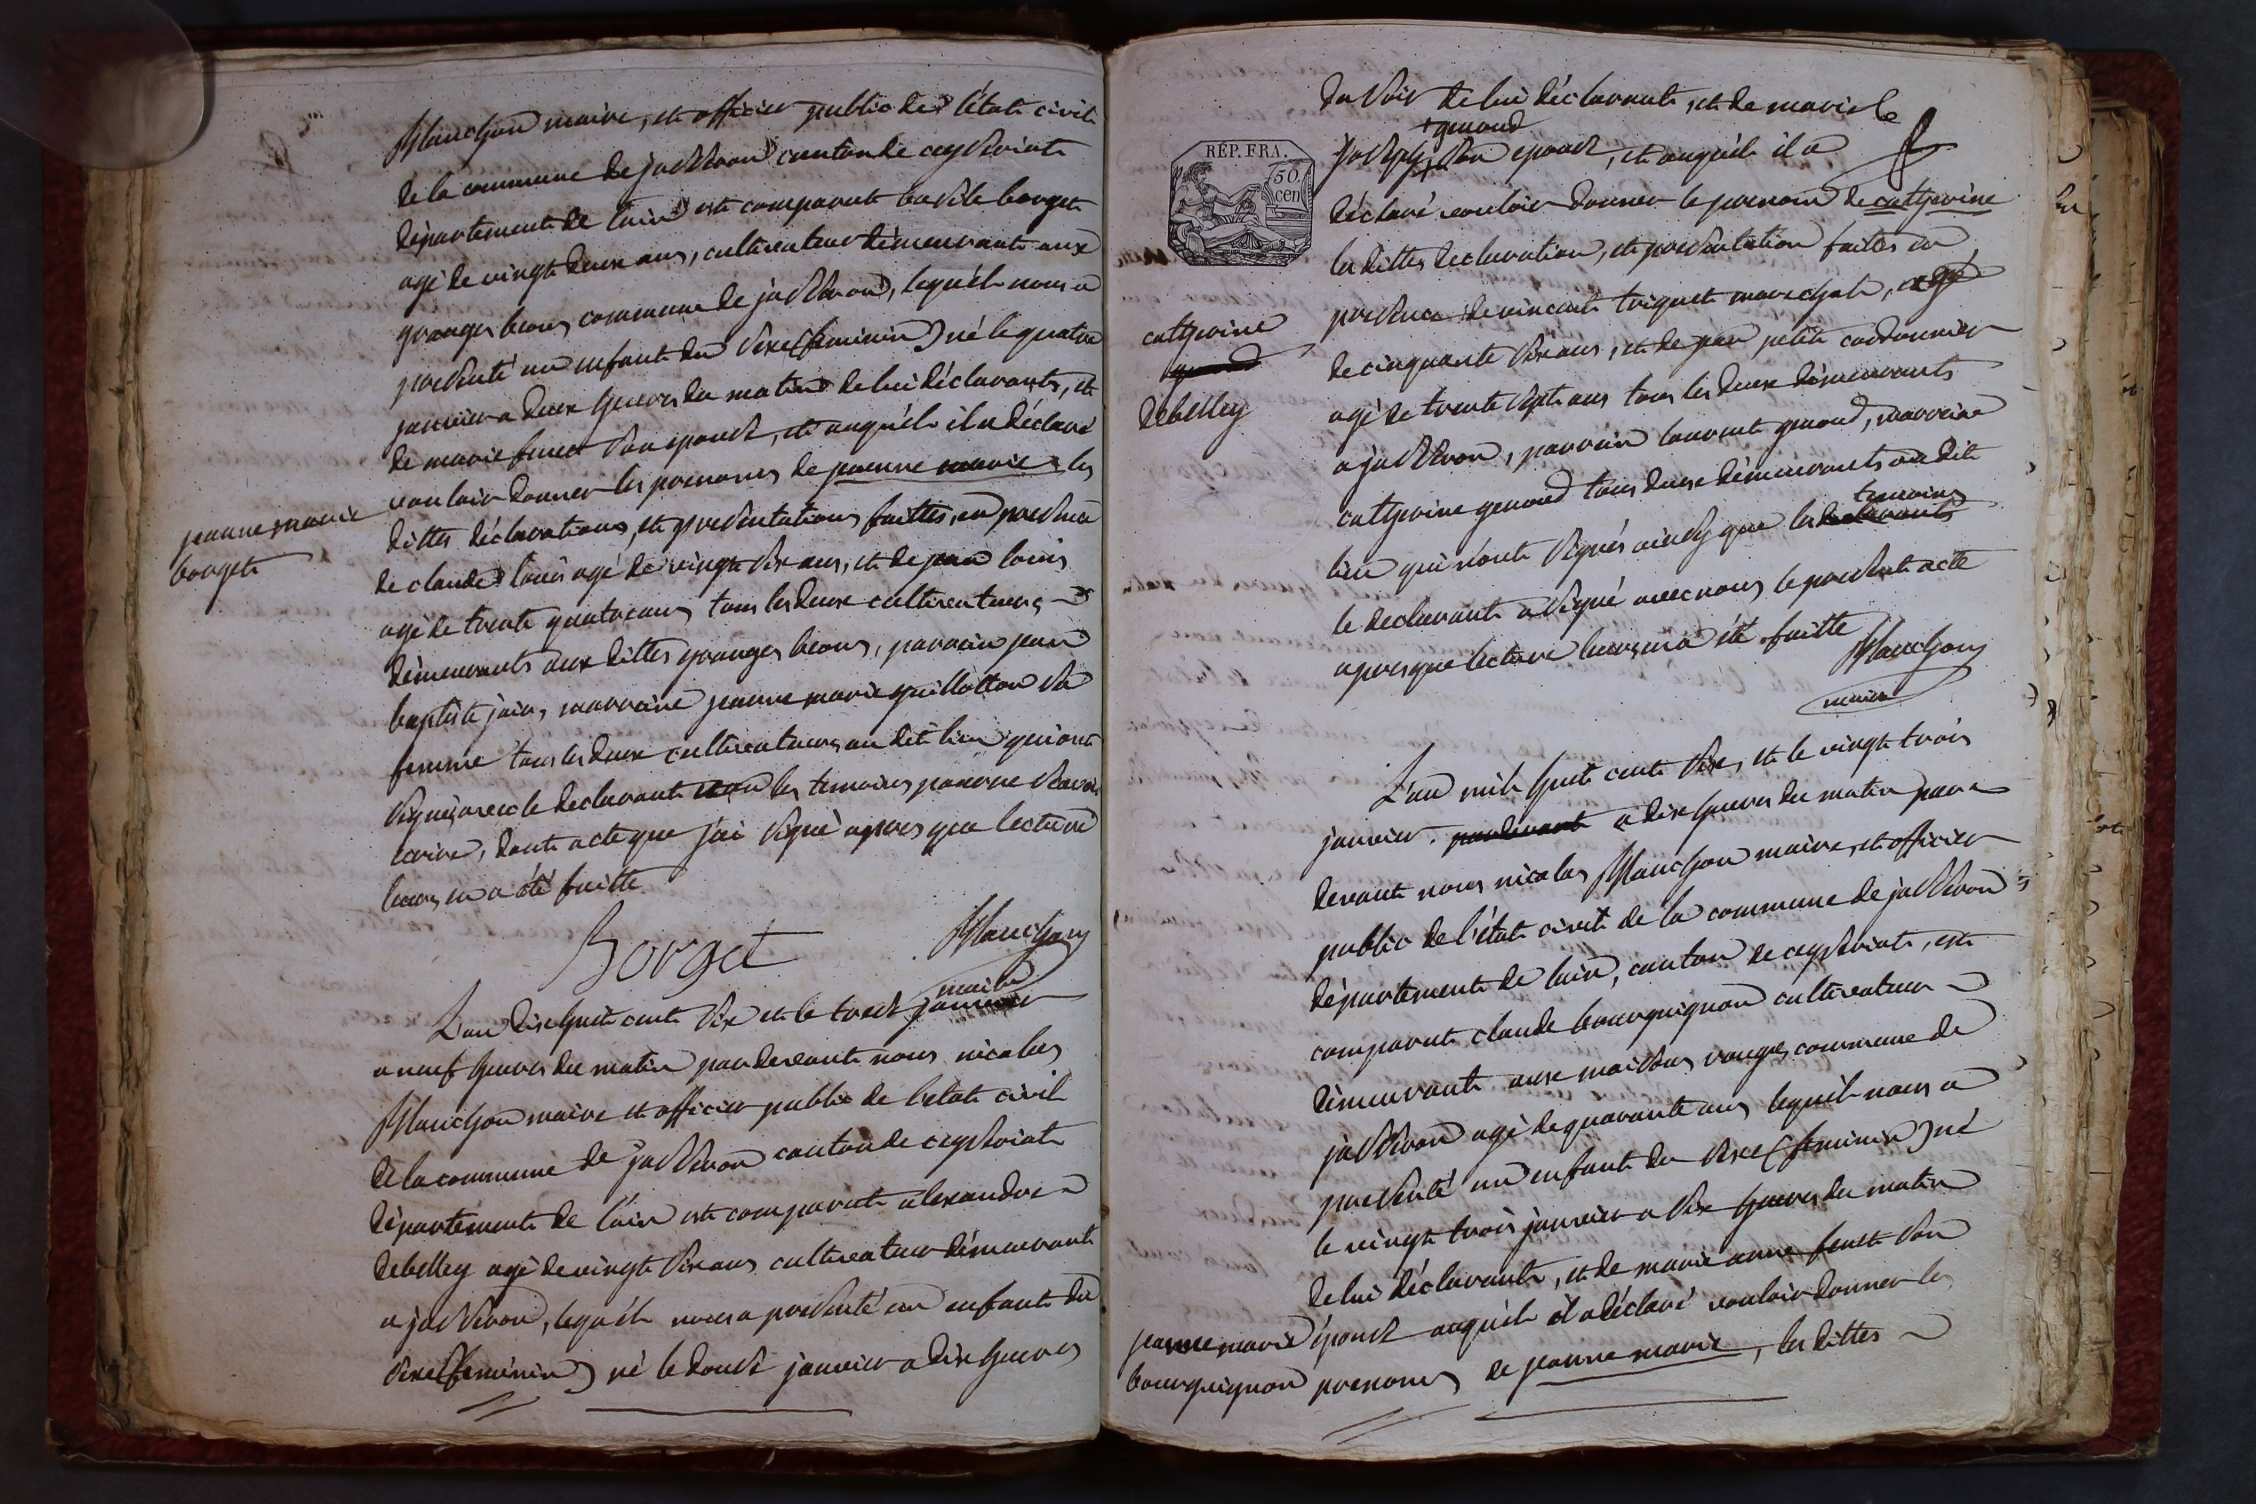 Manchon maire, et officier public de l'état civil
de la commune de jasseron canton de ceyseriat
département de l'ain est comparut basile borget
agé de vingt deux ans, cultivateur démeurant aux
granges beons commune de jasseron, lequél nous a
presenté un enfant du sexe (feminin) né le quatre
janvier a deux heures du matin de lui déclarant, et
de marie son epouse, et auquél il a déclaré
vouloir donner les prenoms de jeanne marie les
dittes déclarations, et presentations faittes, en presence
jeanne marie
borget
de claude louis agé de vingt six ans, et de jean louis
agé de trente quatre ans tous les deux cultivateurs
démeurants aux dittes granges beons, parrain jean
baptiste join, marraine jeanne marie guillotton sa
femme tous les deux cultivateurs au dit lieu qui ont
signé avec le declarant les temoins pour ne savoir
écrire, dont acte que j'ai signé apres que lecture
leurs en a été faitte
Borget
Manchon
maire
L'an dixhuit cent six et le treise janvier
a neuf heures du matin pardevant nous nicolas
Manchon maire et officier public de l'etat civil
de la commune de jasseron canton de ceyseriat
département de l'ain est comparut alexandre
debelley agé de vingt six ans cultivateur démeurant
a jasseron, lequél nous a presenté un enfant du
sexe (feminin) né le douse janvier a dix heures
du soir de lui déclarant, et de marie
genoud
josephe son epouse, et auquél il a
RÉP. FRA.
50.
cen
déclaré vouloir donner le prenom de catherine
les dittes declaration, et presentation faites en
presence de vincent triquet marechal, agé
catherine
genoud
debelley
de cinquante six ans, et de jean petit cordonnier
agé de trente sept ans tous les deux démeurants
a jasseron, parrain laurent genoud, marraine
catherine genoud tous deux démeurants au dit
temoins
lieu qui n'ont signés ainsy que les declarants
le declarant a signé avec nous le present acte
apres que lecture leurs en a été faitte
Manchon
maire
L'an mil huit cent six, et le vingt trois
janvier. pardevant a dix heures du matin par
devant nous nicolas Manchon maire, et officier
public de l'état civil de la commune de jasseron
département de l'ain, canton de ceyseriat, est
comparut claude bourguignon cultivateur
démeurant aux maisons rouges commune de
jasseron agé de quarante ans lequél nous a
presenté un enfant du sexe (feminin) né
le vingt trois janvier a six heures du matin
de lui déclarant, et de marie anne son
épouse auquél il a déclaré vouloir donner les
jeanne marie
bourguignon
prenoms de jeanne marie, les dittes